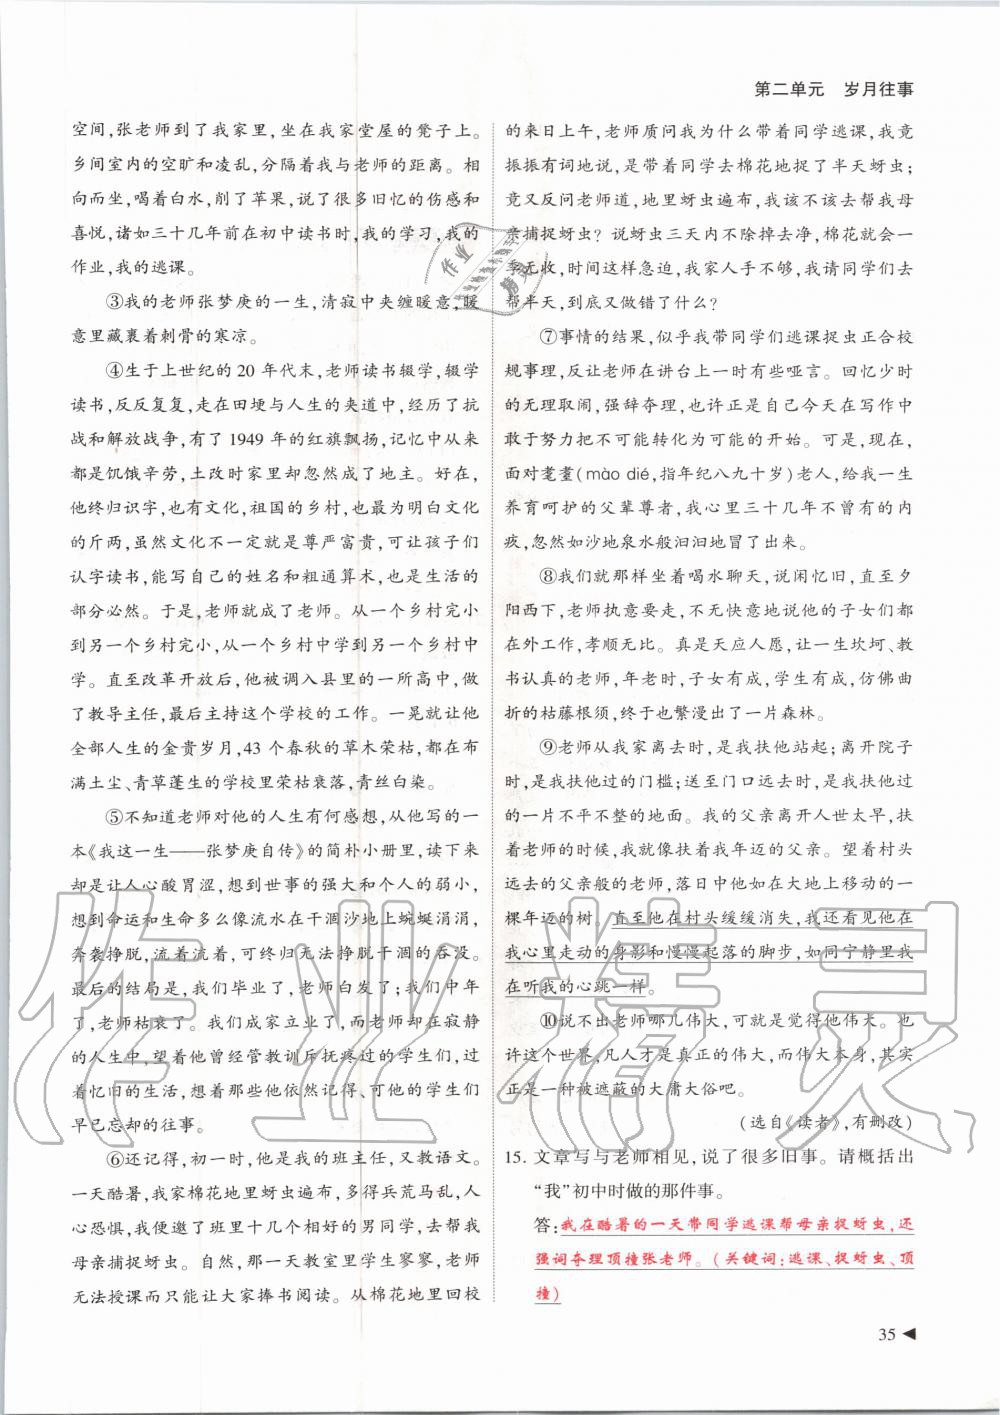 第二单元　岁月往事
空间,张老师到了我家里,坐在我家堂屋的凳子上。
乡间室内的空旷和凌乱,分隔着我与老师的距离。相
向而坐,喝着白水,削了苹果,说了很多旧忆的伤感和
喜悦,诸如三十几年前在初中读书时,我的学习,我的
作业,我的逃课。
③我的老师张梦庚的一生,清寂中夹缠暖意,暖
意里藏裹着刺骨的寒凉。
④生于上世纪的 20 年代末,老师读书辍学,辍学
读书,反反复复,走在田埂与人生的夹道中,经历了抗
战和解放战争,有了 1949 年的红旗飘扬,记忆中从来
都是饥饿辛劳,土改时家里却忽然成了地主。好在,
他终归识字,也有文化,祖国的乡村,也最为明白文化
的斤两,虽然文化不一定就是尊严富贵,可让孩子们
认字读书,能写自己的姓名和粗通算术,也是生活的
部分必然。于是,老师就成了老师。从一个乡村完小
到另一个乡村完小,从一个乡村中学到另一个乡村中
学。直至改革开放后,他被调入县里的一所高中,做
了教导主任,最后主持这个学校的工作。一晃就让他
全部人生的金贵岁月,43 个春秋的草木荣枯,都在布
满土尘、青草蓬生的学校里荣枯衰落,青丝白染。
⑤不知道老师对他的人生有何感想,从他写的一
本《我这一生——张梦庚自传》的简朴小册里,读下来
却是让人心酸胃涩,想到世事的强大和个人的弱小,
想到命运和生命多么像流水在干涸沙地上蜿蜒涓涓,
奔袭挣脱,流着流着,却终归无法挣脱干涸的吞没。
最后的结局是,我们毕业了,老师白发了;我们中年
了,老师枯衰了。我们成家立业了,而老师却在寂静
的人生中,望着他曾经管教训斥抚疼过的学生们,过
着忆旧的生活,想着那些他依然记得、可他的学生们
早已忘却的往事。
⑥还记得,初一时,他是我的班主任,又教语文。
一天酷暑,我家棉花地里蚜虫遍布,多得兵荒马乱,人
心恐惧,我便邀了班里十几个相好的男同学,去帮我
母亲捕捉蚜虫。自然,那一天教室里学生寥寥,老师
无法授课而只能让大家捧书阅读。从棉花地里回校
的来日上午,老师质问我为什么带着同学逃课,我竟
振振有词地说,是带着同学去棉花地捉了半天蚜虫;
竟又反问老师道,地里蚜虫遍布,我该不该去帮我母
亲捕捉蚜虫?说蚜虫三天内不除掉去净,棉花就会一
季无收,时间这样急迫,我家人手不够,我请同学们去
帮半天,到底又做错了什么?
⑦事情的结果,似乎我带同学们逃课捉虫正合校
规事理,反让老师在讲台上一时有些哑言。回忆少时
的无理取闹,强辞夺理,也许正是自己今天在写作中
敢于努力把不可能转化为可能的开始。可是,现在,
面对耄耋(mào dié,指年纪八九十岁)老人,给我一生
养育呵护的父辈尊者,我心里三十几年不曾有的内
疚,忽然如沙地泉水般汩汩地冒了出来。
⑧我们就那样坐着喝水聊天,说闲忆旧,直至夕
阳西下,老师执意要走,不无快意地说他的子女们都
在外工作,孝顺无比。真是天应人愿,让一生坎坷、教
书认真的老师,年老时,子女有成,学生有成,仿佛曲
折的枯藤根须,终于也繁漫出了一片森林。
⑨老师从我家离去时,是我扶他站起;离开院子
时,是我扶他过的门槛;送至门口远去时,是我扶他过
的一片不平不整的地面。我的父亲离开人世太早,扶
着老师的时候,我就像扶着我年迈的父亲。望着村头
远去的父亲般的老师,落日中他如在大地上移动的一
棵年迈的树。直至他在村头缓缓消失,我还看见他在
我心里走动的身影和慢慢起落的脚步,如同宁静里我
在听我的心跳一样。
⑩说不出老师哪儿伟大,可就是觉得他伟大。也
许这个世界,凡人才是真正的伟大,而伟大本身,其实
正是一种被遮蔽的大庸大俗吧。
(选自《读者》,有删改)
15. 文章写与老师相见,说了很多旧事。请概括出
“我”初中时做的那件事。
答:我在酷暑的一天带同学逃课帮母亲捉蚜虫,还
强词夺理顶撞张老师。(关键词:逃课、捉蚜虫、顶
撞)
35
作业精灵